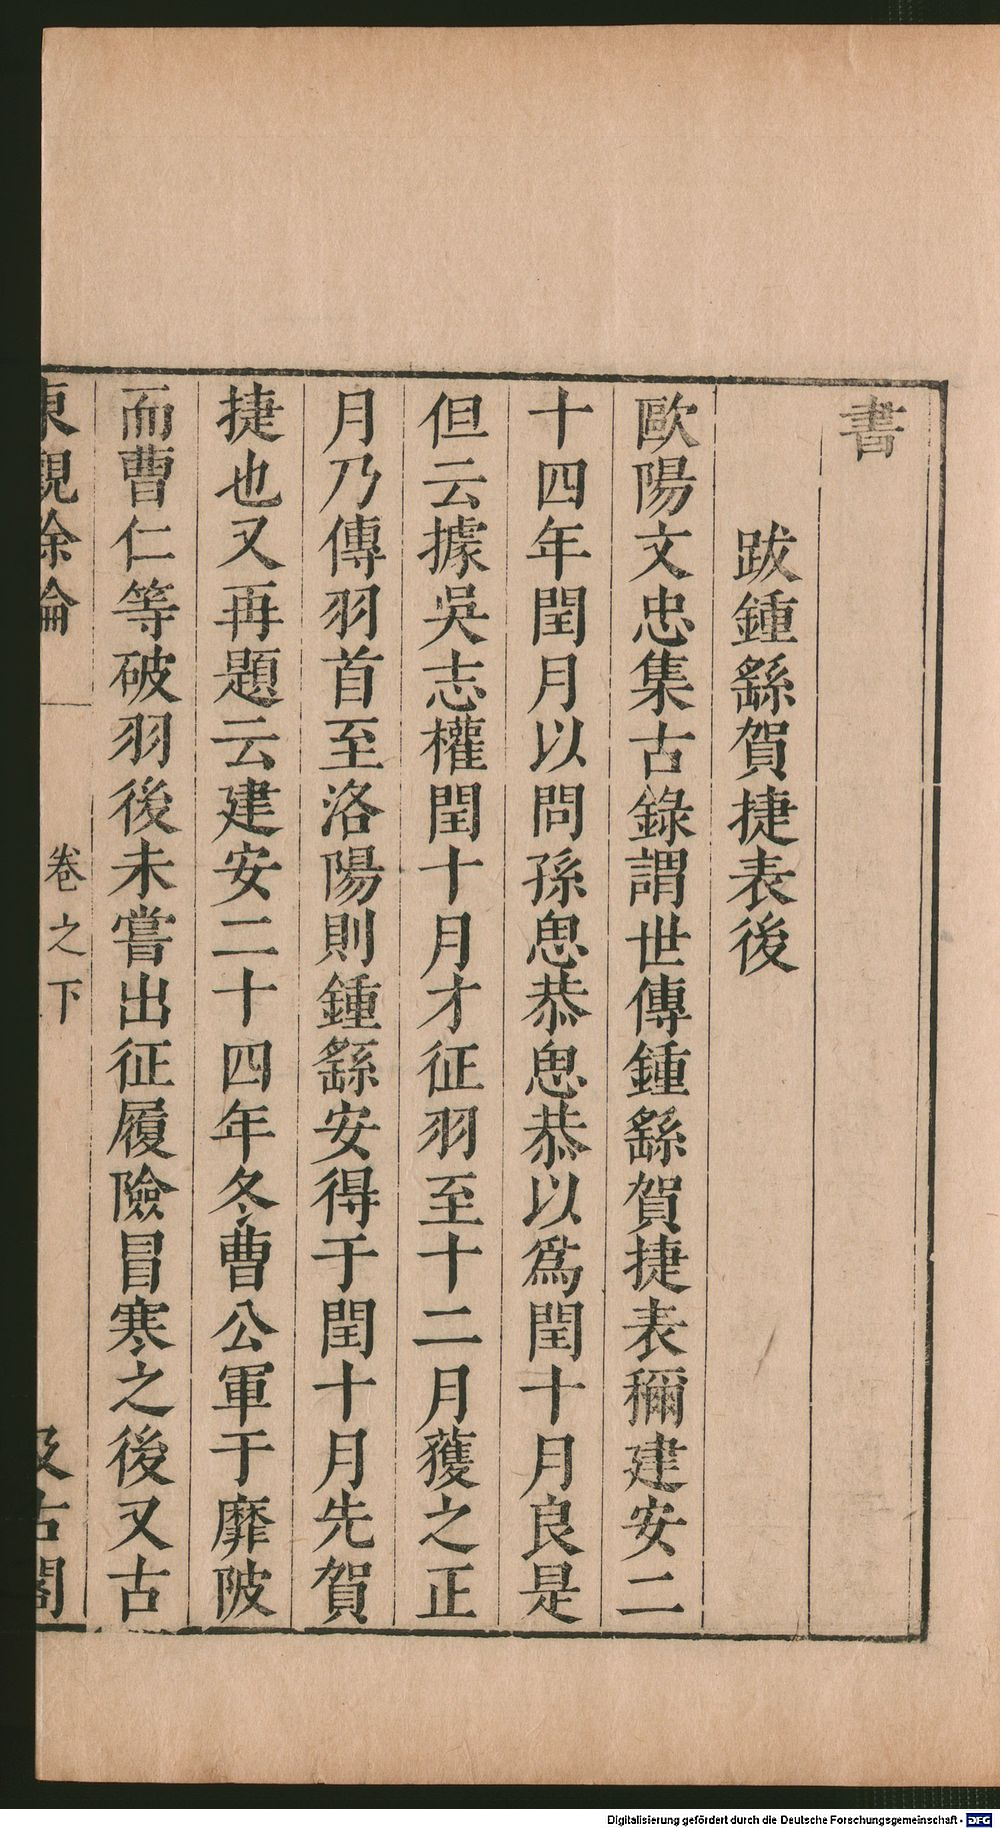 書
跋鍾繇賀捷表後
歐陽文忠集古錄謂世傳鍾繇賀捷表稱建安二
十四年閏月以問孫思恭思恭以爲閏十月良是
但云據吳志權閏十月才征羽至十二月獲之正
月乃傳羽首至洛陽則鍾繇安得于閏十月先賀
捷也又再題云建安二十四年冬曹公軍于靡陂
而曹仁等破羽後未嘗出征履險冒寒之後又古
東觀餘論 卷之下 汲古閣
Digitalisierung gefördert durch die Deutsche Forschungsgemeinschaft - DFG